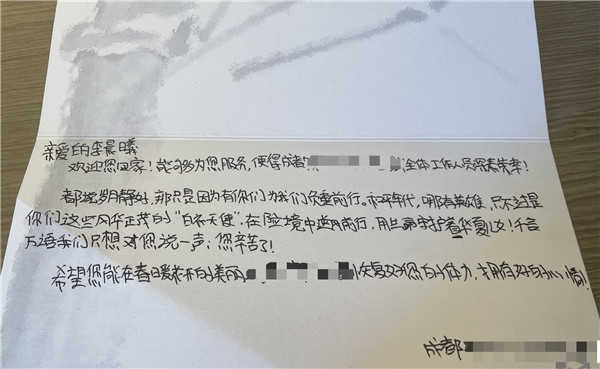 亲爱的李晨曦
欢迎您回家!能够为您服务,使得成都 全体工作人员深表荣幸!
都说岁月静好,那只是因为有你们为我们负重前行,和平年代,哪有英雄,只不过是
你们这些风华正茂的“白衣天使”,在险境中 前行,用 守护着华夏儿女!千言
万语我们只想对您说一声:您辛苦了!
希望您能在春暖花开的美丽 恢复好您的体力,拥有好的心情!
成都